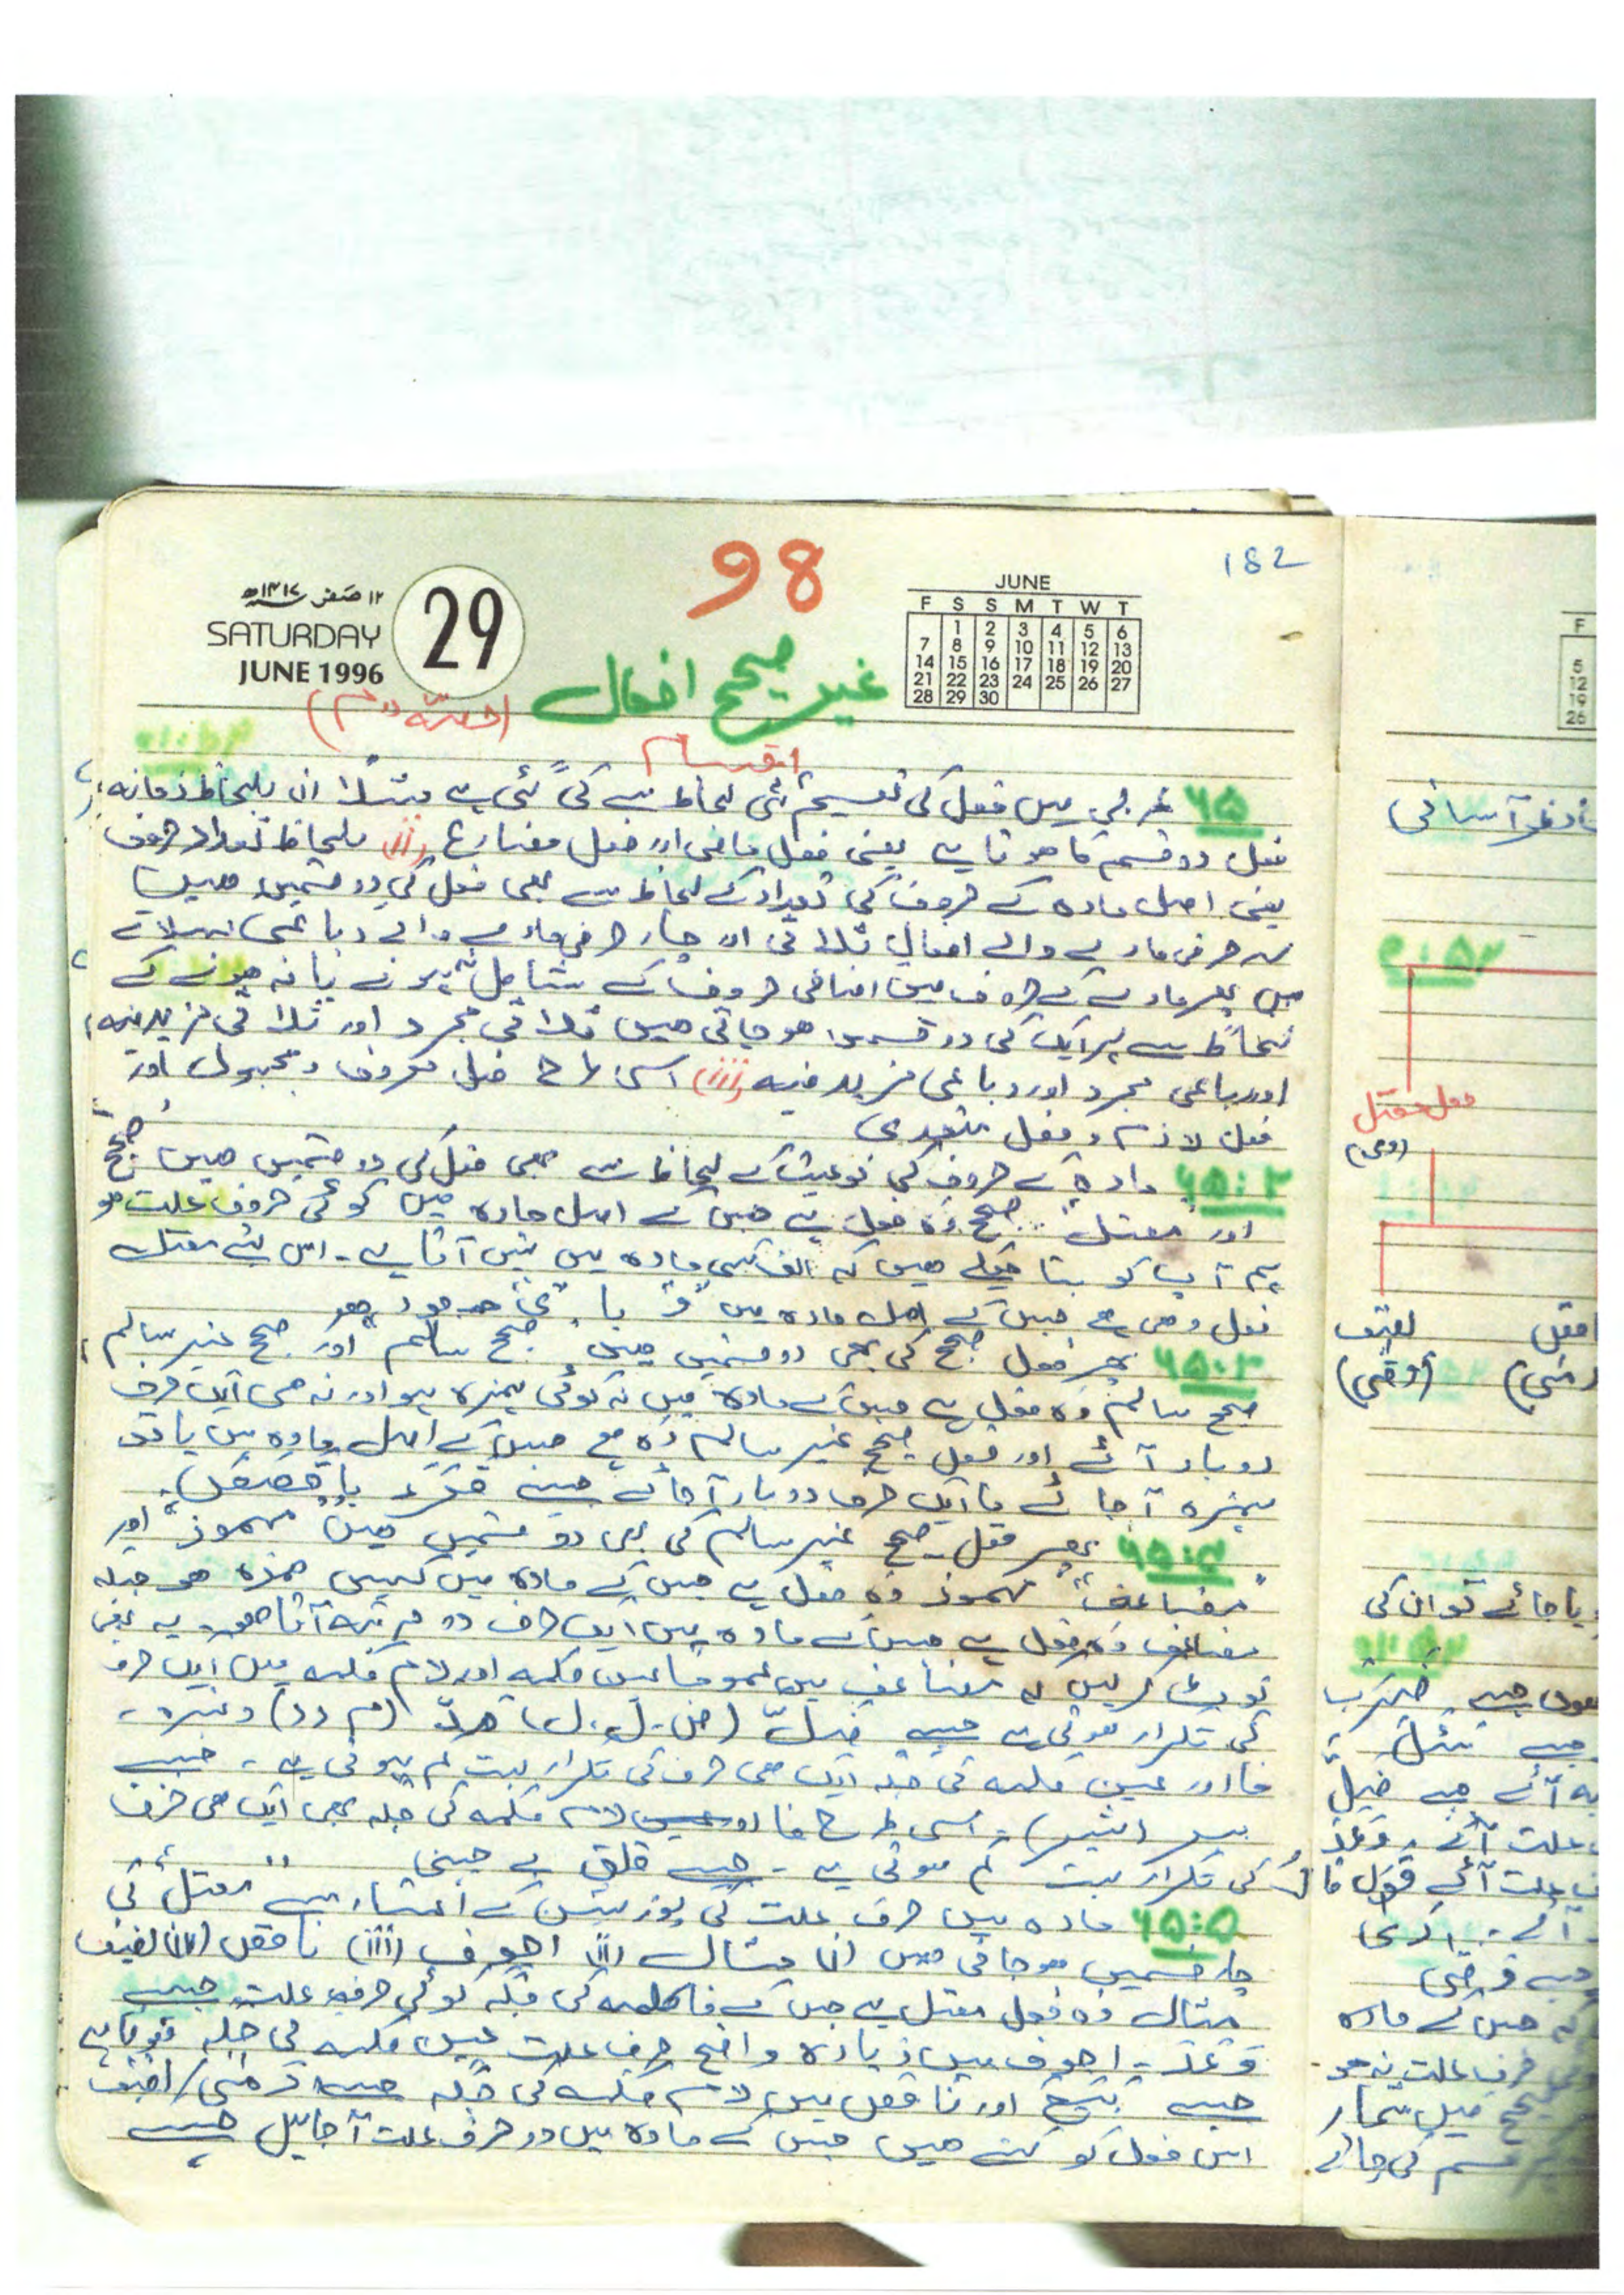 98
182
۱۲ صفر ۱۴۱۷ھ
SATURDAY
JUNE 1996
29
JUNE
F S S M T W T
1 2 3 4 5 6
7 8 9 10 11 12 13
14 15 16 17 18 19 20
21 22 23 24 25 26 27
28 29 30
غیر صحیح افعال (حصّہ دوم)
اقسام
۶۵ عربی میں فعل کی تقسیم کئی لحاظ سے کی گئی ہے مثلاً (i) بلحاظ زمانہ،
فعل دو قسم کا ہوتا ہے یعنی فعل ماضی اور فعل مضارع (ii) بلحاظ تعداد حروف
یعنی اصل مادہ کے حروف کی تعداد کے لحاظ سے بھی فعل کی دو قسمیں ہیں
سہ حرفی مادے والے افعال ثلاثی اور چار حرفی مادے والے رباعی کہلاتے
ہیں پھر مادے کے حروف میں اضافی حروف کے شامل ہونے یا نہ ہونے کے
لحاظ سے ہر ایک کی دو قسمیں ہو جاتی ہیں ثلاثی مجرد اور ثلاثی مزید فیہ،
اور رباعی مجرد اور رباعی مزید فیہ (iii) اسی طرح فعل معروف و مجہول اور
فعل لازم و فعل متعدی
۶۵:۲ مادہ کے حروف کی نوعیت کے لحاظ سے بھی فعل کی دو قسمیں ہیں صحیح
اور "معتل" صحیح وہ فعل ہے جس کے اصل مادہ میں کوئی حروف علت ہو
ہم آپ کو بتا چکے ہیں کہ الف کسی مادہ میں نہیں آتا ہے۔ اس لئے معتل
فعل وہی ہے جس کے اصل مادہ میں "و" یا "ی" موجود ہو
۶۵:۳ پھر فعل صحیح کی بھی دو قسمیں ہیں صحیح سالم اور صحیح غیر سالم،
صحیح سالم وہ فعل ہے جس کے مادہ میں نہ کوئی ہمزہ ہو اور نہ ہی ایک حرف
دو بار آئے اور فعل صحیح غیر سالم وہ ہے جس کے اصل مادہ میں یا تو
ہمزہ آجائے یا ایک حرف دو بار آجائے جیسے
۶۵:۴ پھر فعل صحیح غیر سالم کی بھی دو قسمیں ہیں "مہموز" اور
"مضاعف" مہموز وہ فعل ہے جس کے مادہ میں کہیں ہمزہ ہو جبکہ
مضاعف وہ فعل ہے جس کے مادہ میں ایک حرف دو مرتبہ آتا ہو۔ یہ بھی
نوٹ کر لیں کہ مضاعف میں عموماً عین کلمہ اور لام کلمہ میں ایک حرف
کی تکرار ہوتی ہے جیسے ضلّ (ض۔ل۔ل) مدّ (م د د) وغیرہ۔
فا اور عین کلمہ کی جگہ ایک ہی حرف کی تکرار بہت کم ہوتی ہے۔ جیسے
ببر (شیر)۔ اسی طرح فا اور لام کلمہ کی جگہ بھی ایک ہی حرف
کی تکرار بہت کم ہوتی ہے۔ جیسے قلق بے چینی
۶۵:۵ مادہ میں حرف علت کی پوزیشن کے اعتبار سے "معتل" کی
چار قسمیں ہو جاتی ہیں (i) مثال (ii) اجوف (iii) ناقص (iv) لفیف
مثال وہ فعل معتل ہے جس کے فا کلمہ کی جگہ کوئی حرف علت جیسے
وَعَدَ۔ اجوف میں زیادہ واضح حرف علت عین کلمہ کی جگہ ہوتا ہے
جیسے بَیَعَ اور ناقص میں لام کلمہ کی جگہ جیسے رَمَیَ / لفیف
اس فعل کو کہتے ہیں جس کے مادہ میں دو حرف علت آجائیں جیسے
فعل معتل
لفیف
یا جائے تو ان کی
جیسے ضَرَبَ
علت آئے وَعَدَ
جس کے مادہ
حرف علت نہ ہو
میں شمار